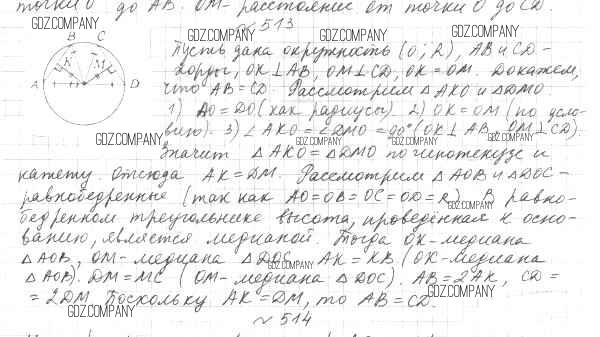 точки O до AB. OM - расстояние от точки O до CD.
GDZ.COMPANY
№ 513
GDZ.COMPANY GDZ.COMPANY GDZ.COMPANY
B C
K M
A D
Пусть дана окружность (O; R), AB и CD -
хорды, OK ⊥ AB, OM ⊥ CD, OK = OM. Докажем,
что AB = CD. Рассмотрим △ AKO и △ DMO.
1) AO = DO (как радиусы). 2) OK = OM (по усло-
вию). 3) ∠ AKO = ∠ DMO = 90° (OK ⊥ AB, OM ⊥ CD).
GDZ.COMPANY GDZ.COMPANY GDZ.COMPANY GDZ.COMPANY
Значит △ AKO = △ DMO по гипотенузе и
катету. Отсюда AK = DM. Рассмотрим △ AOB и △ DOC -
равнобедренные (так как AO = OB = OC = OD = R). В равно-
GDZ.COMPANY
бедренном треугольнике высота, проведённая к осно-
ванию, является медианой. Тогда OK - медиана
△ AOB, OM - медиана △ DOC. AK = KB (OK - медиана
GDZ.COMPANY
△ AOB). DM = MC (OM - медиана △ DOC). AB = 2AK, CD =
= 2DM. Поскольку AK = DM, то AB = CD.
GDZ.COMPANY
GDZ.COMPANY
№ 514